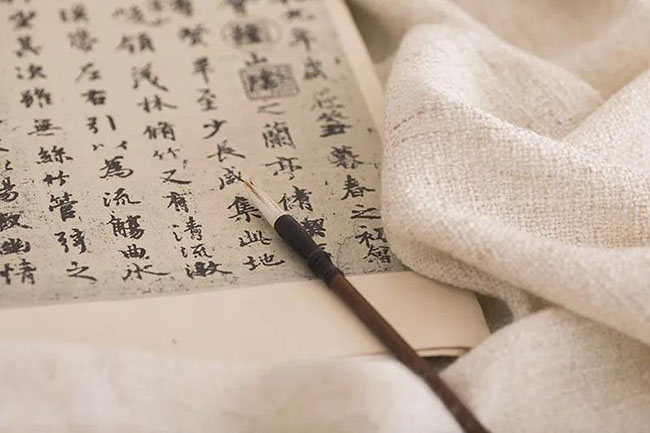 九年歲在癸丑暮春之初會
會稽山陰之蘭亭脩禊
賢畢至少長咸集此地
領茂林脩竹又有清流激
暎帶左右引以為流觴曲水
坐其次雖無絲竹管弦之
暢敘幽情